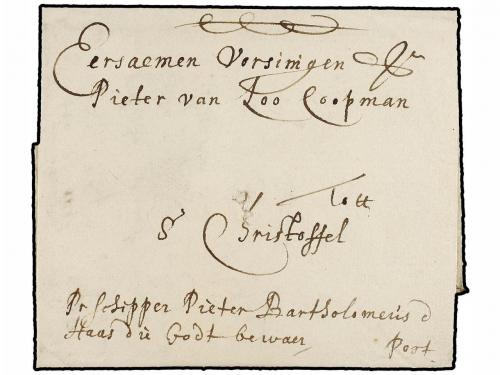 Eersaemen Vorsinigen Sr
Pieter van Loo Coopman
Tott
St Christoffel
Pr Schipper Pieter Bartholomeus d
Haas die Godt bewaer
Port